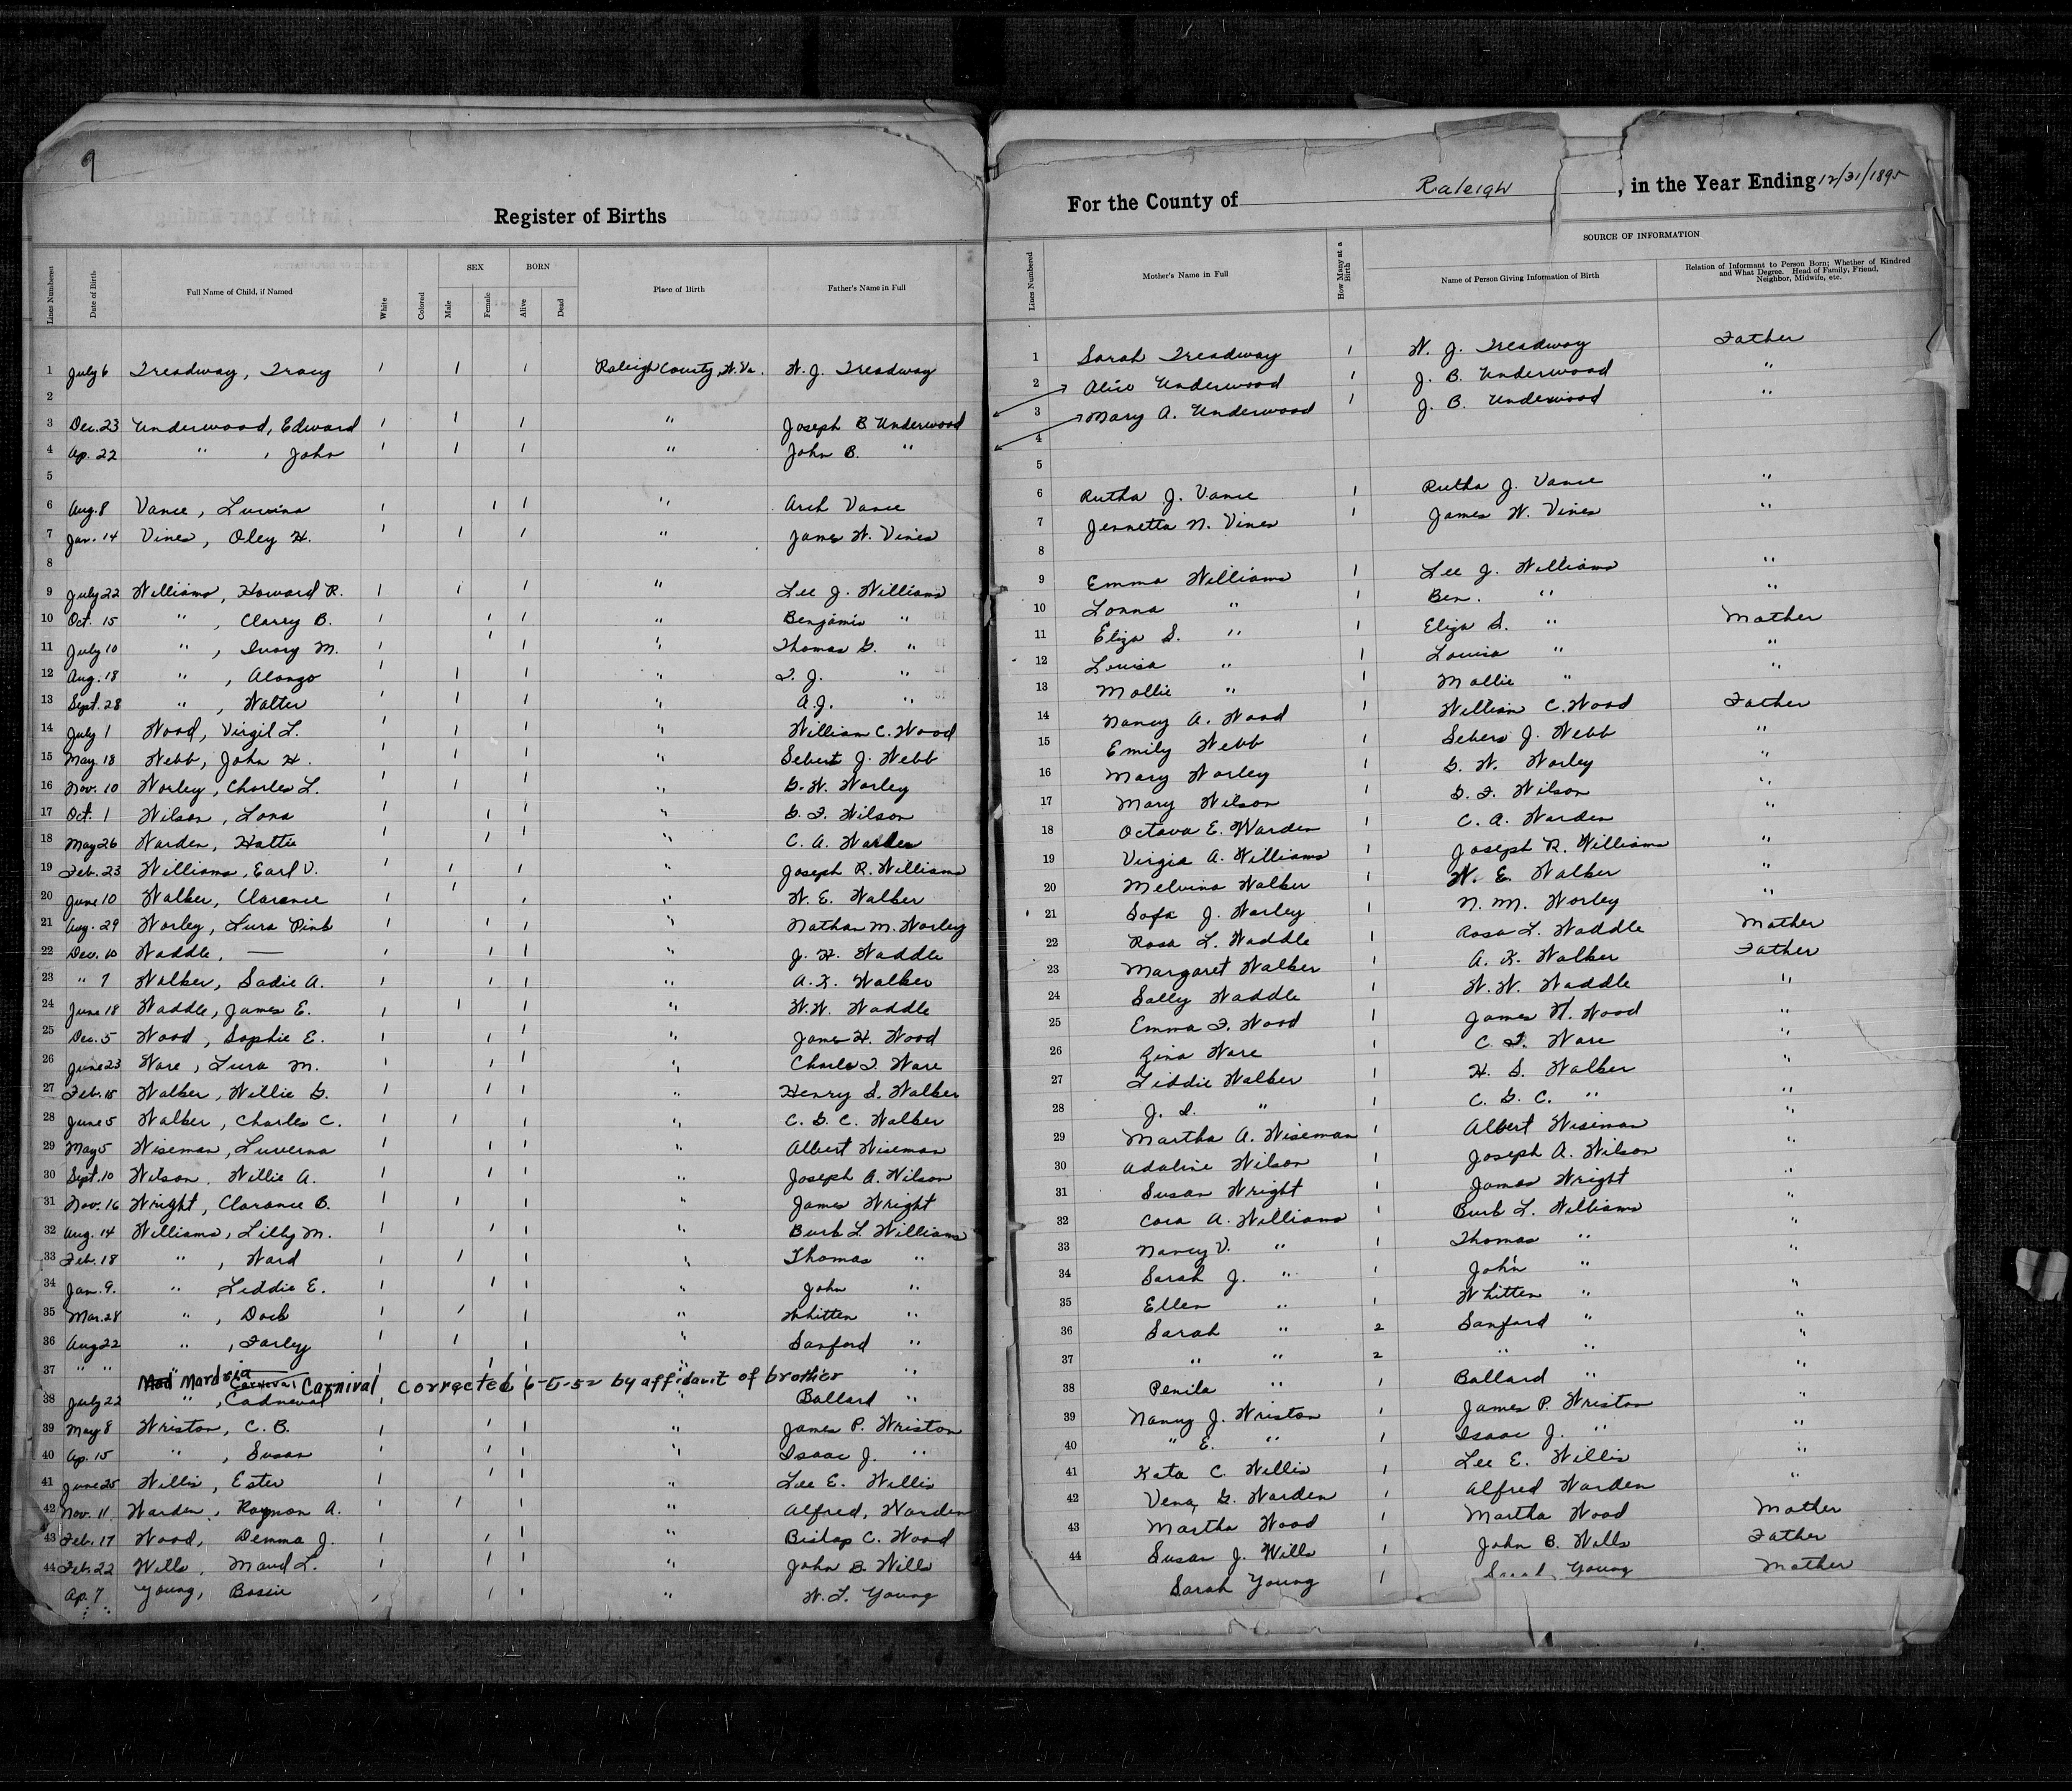 9
Register of Births
Lines Numbered Date of Birth Full Name of Child, if Named White Colored SEX Male Female BORN Alive Dead Place of Birth Father's Name in Full
1 July 6 Treadway, Tracy 1 1 1 Raleigh County, W. Va. W. J. Treadway
2
3 Dec. 23 Underwood, Edward 1 1 1 " Joseph B Underwood
4 Ap. 22 " , John 1 1 1 " John B. "
5
6 Aug. 8 Vance, Luvina 1 1 1 " Arch Vance
7 Jan. 14 Vines, Oley H. 1 1 1 " James W. Vines
8
9 July 22 Williams, Howard R. 1 1 1 " Lee J. Williams
10 Oct. 15 " , Clarry B. 1 1 1 " Benjamin "
11 July 10 " , Ivory M. 1 1 1 " Thomas G. "
12 Aug. 18 " , Alonzo 1 1 1 " T. J. "
13 Sept. 28 " , Walter 1 1 1 " A. J. "
14 July 1 Wood, Virgil L. 1 1 1 " William C. Wood
15 May 18 Webb, John H. 1 1 1 " Sebert J. Webb
16 Nov. 10 Worley, Charles L. 1 1 1 " G. W. Worley
17 Oct. 1 Wilson, Lona 1 1 1 " G. F. Wilson
18 May 26 Warden, Hattie 1 1 1 " C. A. Warden
19 Feb. 23 Williams, Earl V. 1 1 1 " Joseph R. Williams
20 June 10 Walker, Clarence 1 1 1 " W. E. Walker
21 Aug. 29 Worley, Lura Pink 1 1 1 " Nathan M. Worley
22 Dec. 10 Waddle, — 1 1 1 " J. H. Waddle
23 " 7 Walker, Sadie A. 1 1 1 " A. K. Walker
24 June 18 Waddle, James E. 1 1 1 " W. W. Waddle
25 Dec. 5 Wood, Sophie E. 1 1 1 " James H. Wood
26 June 23 Ware, Lura M. 1 1 1 " Charles T. Ware
27 Feb. 15 Walker, Willie G. 1 1 1 " Henry S. Walker
28 June 5 Walker, Charles C. 1 1 1 " C. G. C. Walker
29 May 5 Wiseman, Luverna 1 1 1 " Albert Wiseman
30 Sept. 10 Wilson, Willie A. 1 1 1 " Joseph A. Wilson
31 Nov. 16 Wright, Clarance B. 1 1 1 " James Wright
32 Aug. 14 Williams, Lilly M. 1 1 1 " Burb L. Williams
33 Feb. 18 " , Ward 1 1 1 " Thomas "
34 Jan. 9. " , Liddie E. 1 1 1 " John "
35 Mar. 28 " , Dock 1 1 1 " Whitten "
36 Aug 22 " , Farley 1 1 1 " Sanford "
37 " " 1 1 1 " " "
Carnival Corrected 6-5-52 by affidavit of brother
38 July 22 " , Cadneval 1 " Ballard "
39 May 8 Wriston, C. B. 1 1 1 " James P. Wriston
40 Ap. 15 " , Susan 1 1 1 " Isaac J. "
41 June 25 Willis, Ester 1 1 1 " Lee E. Willis
42 Nov. 11 Warden, Raymon A. 1 1 1 " Alfred, Warden
43 Feb. 17 Wood, Demma J. 1 1 1 " Bishop C. Wood
44 Feb. 22 Wills, Maud L. 1 1 1 " John B. Wills
Ap. 7 Young, Bosie 1 1 1 " W. L. Young
For the County of Raleigh , in the Year Ending 12/31/1895
Lines Numbered Mother's Name in Full How Many at a Birth SOURCE OF INFORMATION Name of Person Giving Information of Birth Relation of Informant to Person Born; Whether of Kindred and What Degree. Head of Family, Friend, Neighbor, Midwife, etc.
1 Sarah Treadway 1 W. J. Treadway Father
2 Alice Underwood 1 J. B. Underwood "
3 Mary A. Underwood 1 J. B. Underwood "
4
5
6 Rutha J. Vance 1 Rutha J. Vance "
7 Jennetta N. Vines 1 James W. Vines "
8
9 Emma Williams 1 Lee J. Williams "
10 Lonna " 1 Ben. " "
11 Eliza S. " 1 Eliza S. " Mother
12 Louisa " 1 Louisa " "
13 Mollie " 1 Mollie " "
14 Nancy A. Wood 1 William C. Wood Father
15 Emily Webb 1 Sebers J. Webb "
16 Mary Worley 1 G. W. Worley "
17 Mary Wilson 1 G. F. Wilson "
18 Octava E. Warden 1 C. A. Warden "
19 Virgia A. Williams 1 Joseph R. Williams "
20 Melvina Walker 1 W. E. Walker "
21 Sofa J. Worley 1 N. M. Worley "
22 Rosa L. Waddle 1 Rosa L. Waddle Mother
23 Margaret Walker 1 A. K. Walker Father
24 Sally Waddle 1 W. W. Waddle "
25 Emma F. Wood 1 James H. Wood "
26 Zina Ware 1 C. T. Ware "
27 Liddie Walker 1 H. S. Walker "
28 J. S. " 1 C. G. C. " "
29 Martha A. Wiseman 1 Albert Wiseman "
30 Adaline Wilson 1 Joseph A. Wilson "
31 Susan Wright 1 James Wright "
32 Cora A. Williams 1 Burb L. Williams "
33 Nancy V. " 1 Thomas " "
34 Sarah J. " 1 John " "
35 Ellen " 1 Whitten " "
36 Sarah " 2 Sanford " "
37 " " 2 " " "
38 Penila " 1 Ballard " "
39 Nancy J. Wriston 1 James P. Wriston "
40 " E. " 1 Isaac J. " "
41 Kata C. Willis 1 Lee E. Willis "
42 Vena G. Warden 1 Alfred Warden "
43 Martha Wood 1 Martha Wood Mother
44 Susan J. Wills 1 John B. Wills Father
Sarah Young 1 Sarah Young Mother